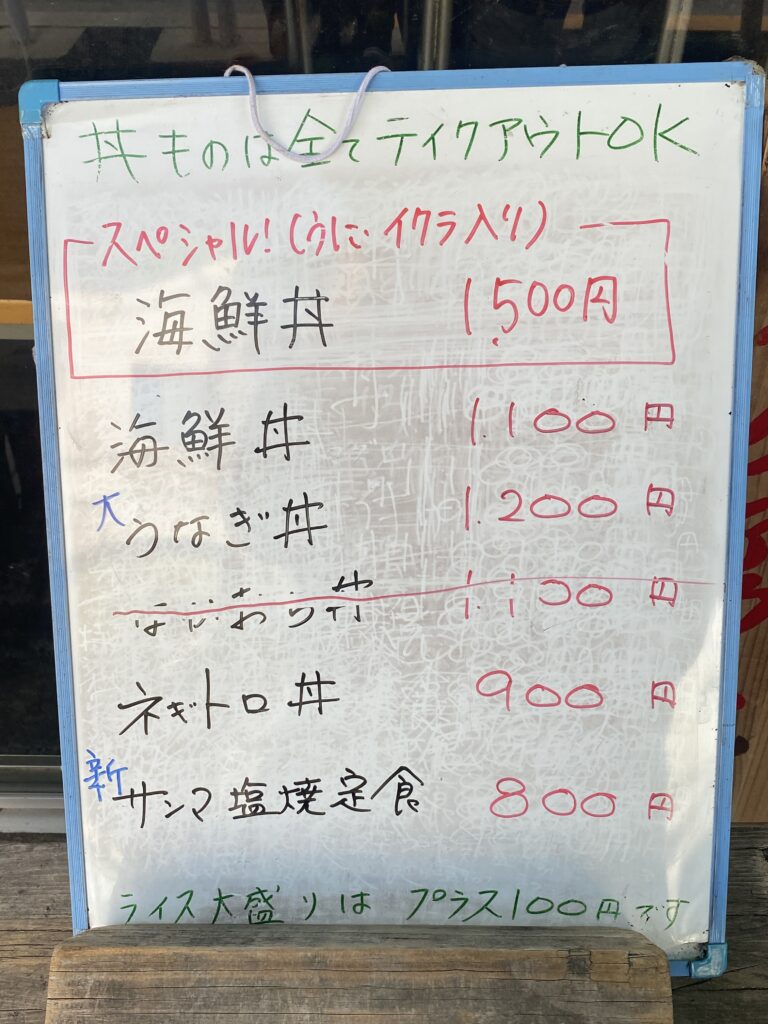 丼ものは全てテイクアウトOK
スペシャル!(うに、イクラ入り)
海鮮丼 1.500円
海鮮丼 1.100円
大 うなぎ丼 1.200円
1.100円
ネギトロ丼 900円
新 サンマ塩焼定食 800円
ライス大盛りは プラス100円です